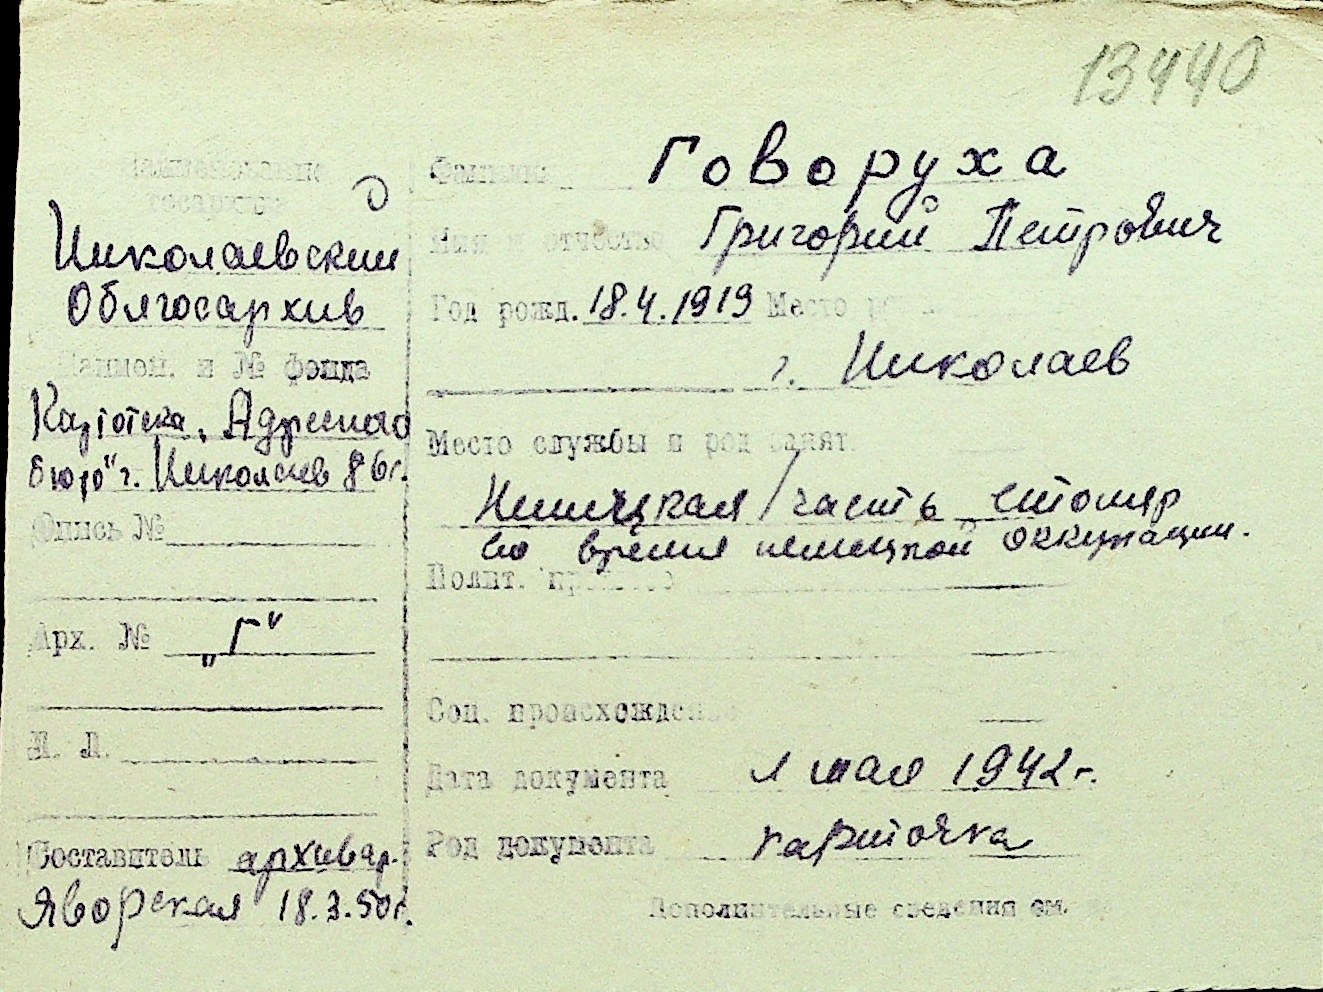 13440
Наименование
госархива
Николаевский
Облгосархив
Наимен. и № фонда
Картотека „Адресного
бюро" г. Николаев 86г.
Опись №
Арх. № „Г"
К. Л.
Составитель архивар.
Яворская 18.3.50г.
Фамилия Говоруха
Имя и отчество Григорий Петрович
Год рожд. 18.4.1919 Место
г. Николаев
Место службы и род занят.
Немецкая часть столяр
во время немецкой оккупации.
Полит.
Соц. происхождение
Дата документа 1 мая 1942г.
Род документа карточка
Дополнительные сведения см.